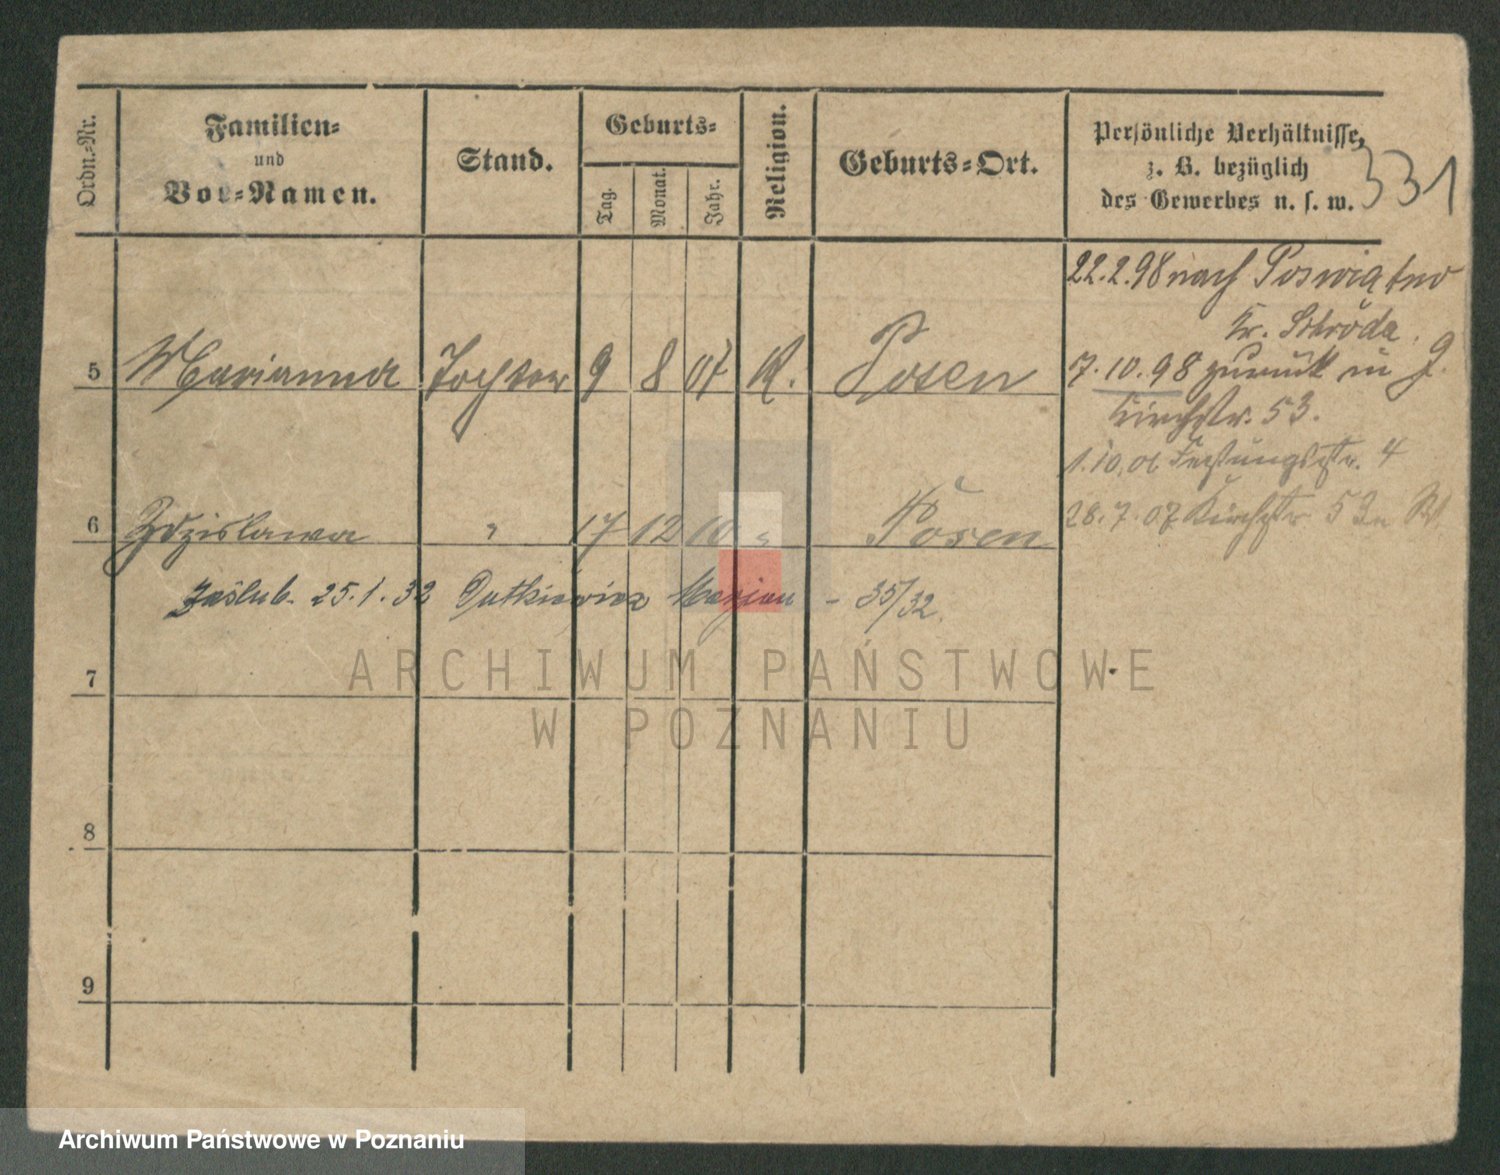 Ordn.-Nr. Familien- und Vor-Namen. Stand. Geburts- Tag. Monat. Jahr. Religion. Geburts-Ort. Persönliche Verhältnisse, z. B. bezüglich des Gewerbes u. s. w.
331
22.2.98 nach
Kr. Schroda.
7.10.98 zurück in J.
Kirchstr. 53.
5 Marianna Tochter 9 8 07 K. Posen
1.10.01 Festungsstr. 4
6 Zdzislawa " 17 12 10 " Posen
28.7.07 Kirchstr 53
Zaślub. 25.1.32 Dutkiewicz Marjan - 35/32
7
8
9
ARCHIWUM PAŃSTWOWE
W POZNANIU
Archiwum Państwowe w Poznaniu